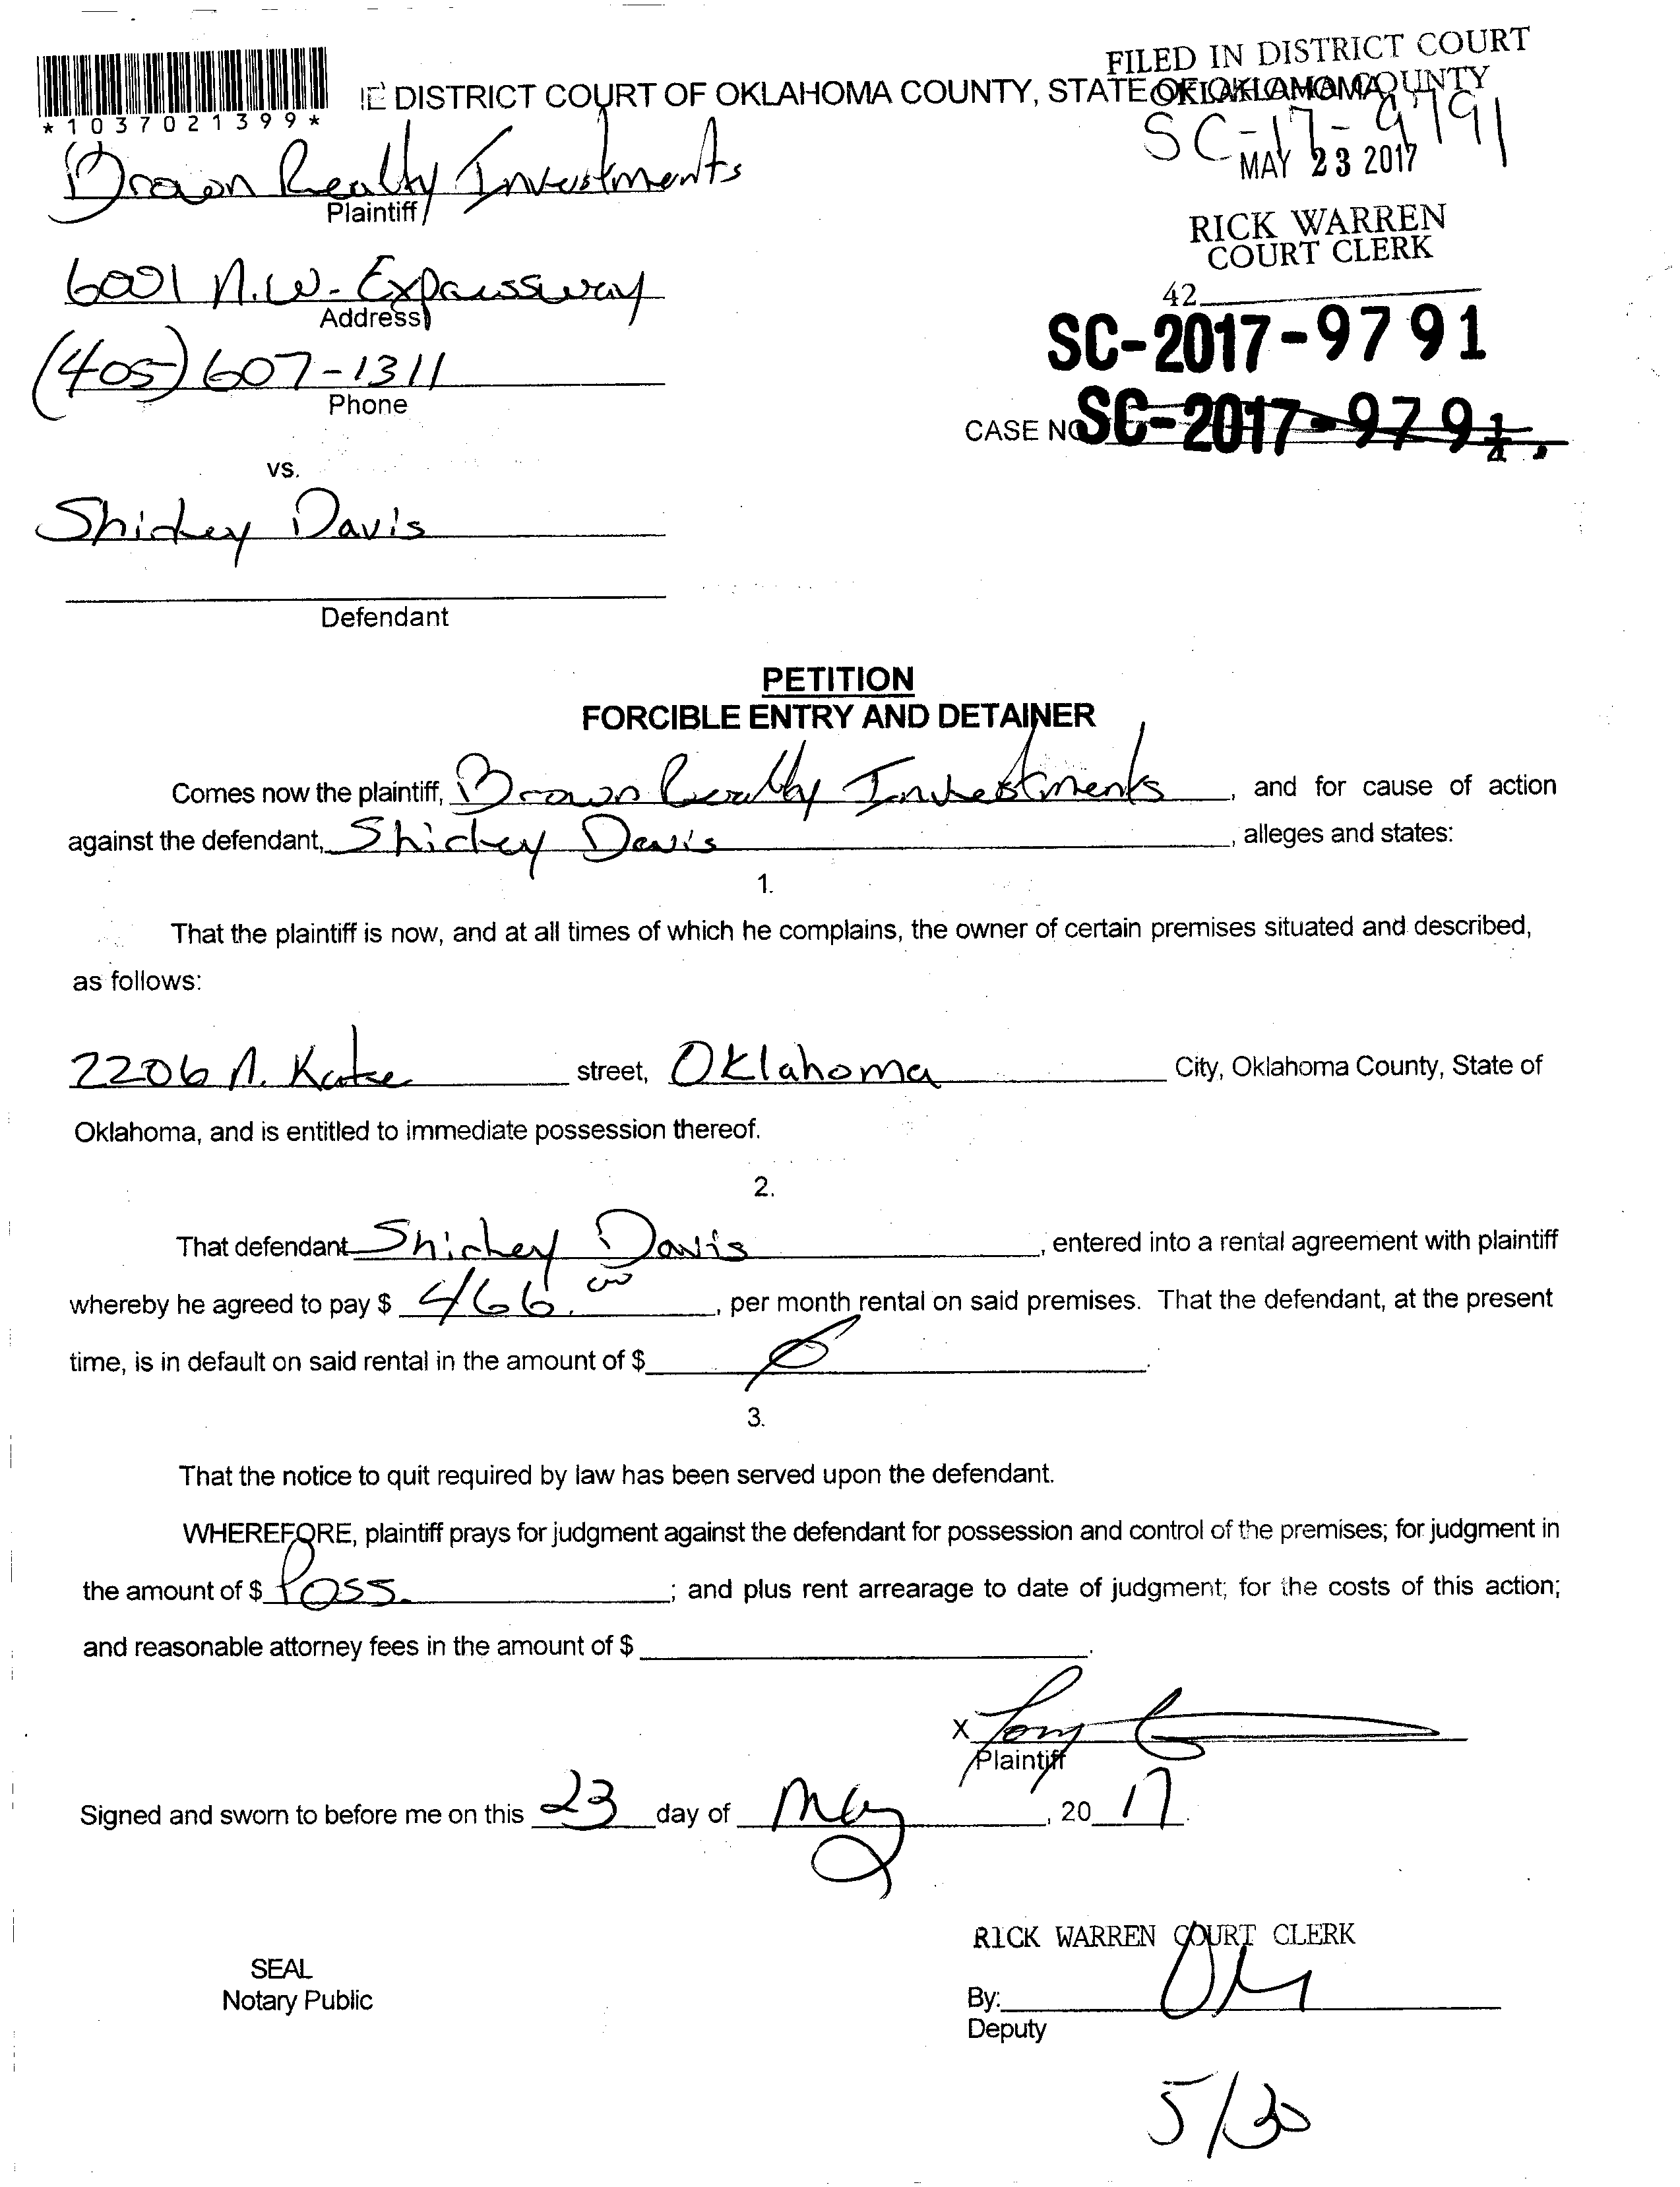 FILED IN DISTRICT COURT
OKLAHOMA COUNTY
IE DISTRICT COURT OF OKLAHOMA COUNTY, STATE OF OKLAHOMA
*1037021399*
SC-17-9791
MAY 23 2017
Brown Realty Investments
Plaintiff
RICK WARREN
COURT CLERK
6001 N.W. Expressway
Address
42
SC-2017-9791
(405) 607-1311
Phone
CASE NO SC-2017-979
vs.
Shirley Davis
Defendant
PETITION
FORCIBLE ENTRY AND DETAINER
Comes now the plaintiff, Brown Realty Investments, and for cause of action
against the defendant, Shirley Davis, alleges and states:
1.
That the plaintiff is now, and at all times of which he complains, the owner of certain premises situated and described,
as follows:
2206 N. Kate street, Oklahoma City, Oklahoma County, State of
Oklahoma, and is entitled to immediate possession thereof.
2.
That defendant Shirley Davis, entered into a rental agreement with plaintiff
whereby he agreed to pay $ 466.00, per month rental on said premises. That the defendant, at the present
time, is in default on said rental in the amount of $ Ø.
3.
That the notice to quit required by law has been served upon the defendant.
WHEREFORE, plaintiff prays for judgment against the defendant for possession and control of the premises; for judgment in
the amount of $ Poss. ; and plus rent arrearage to date of judgment; for the costs of this action;
and reasonable attorney fees in the amount of $
X Tony
Plaintiff
Signed and sworn to before me on this 23 day of May, 20 17.
RICK WARREN COURT CLERK
SEAL
Notary Public
By:
Deputy
5/30